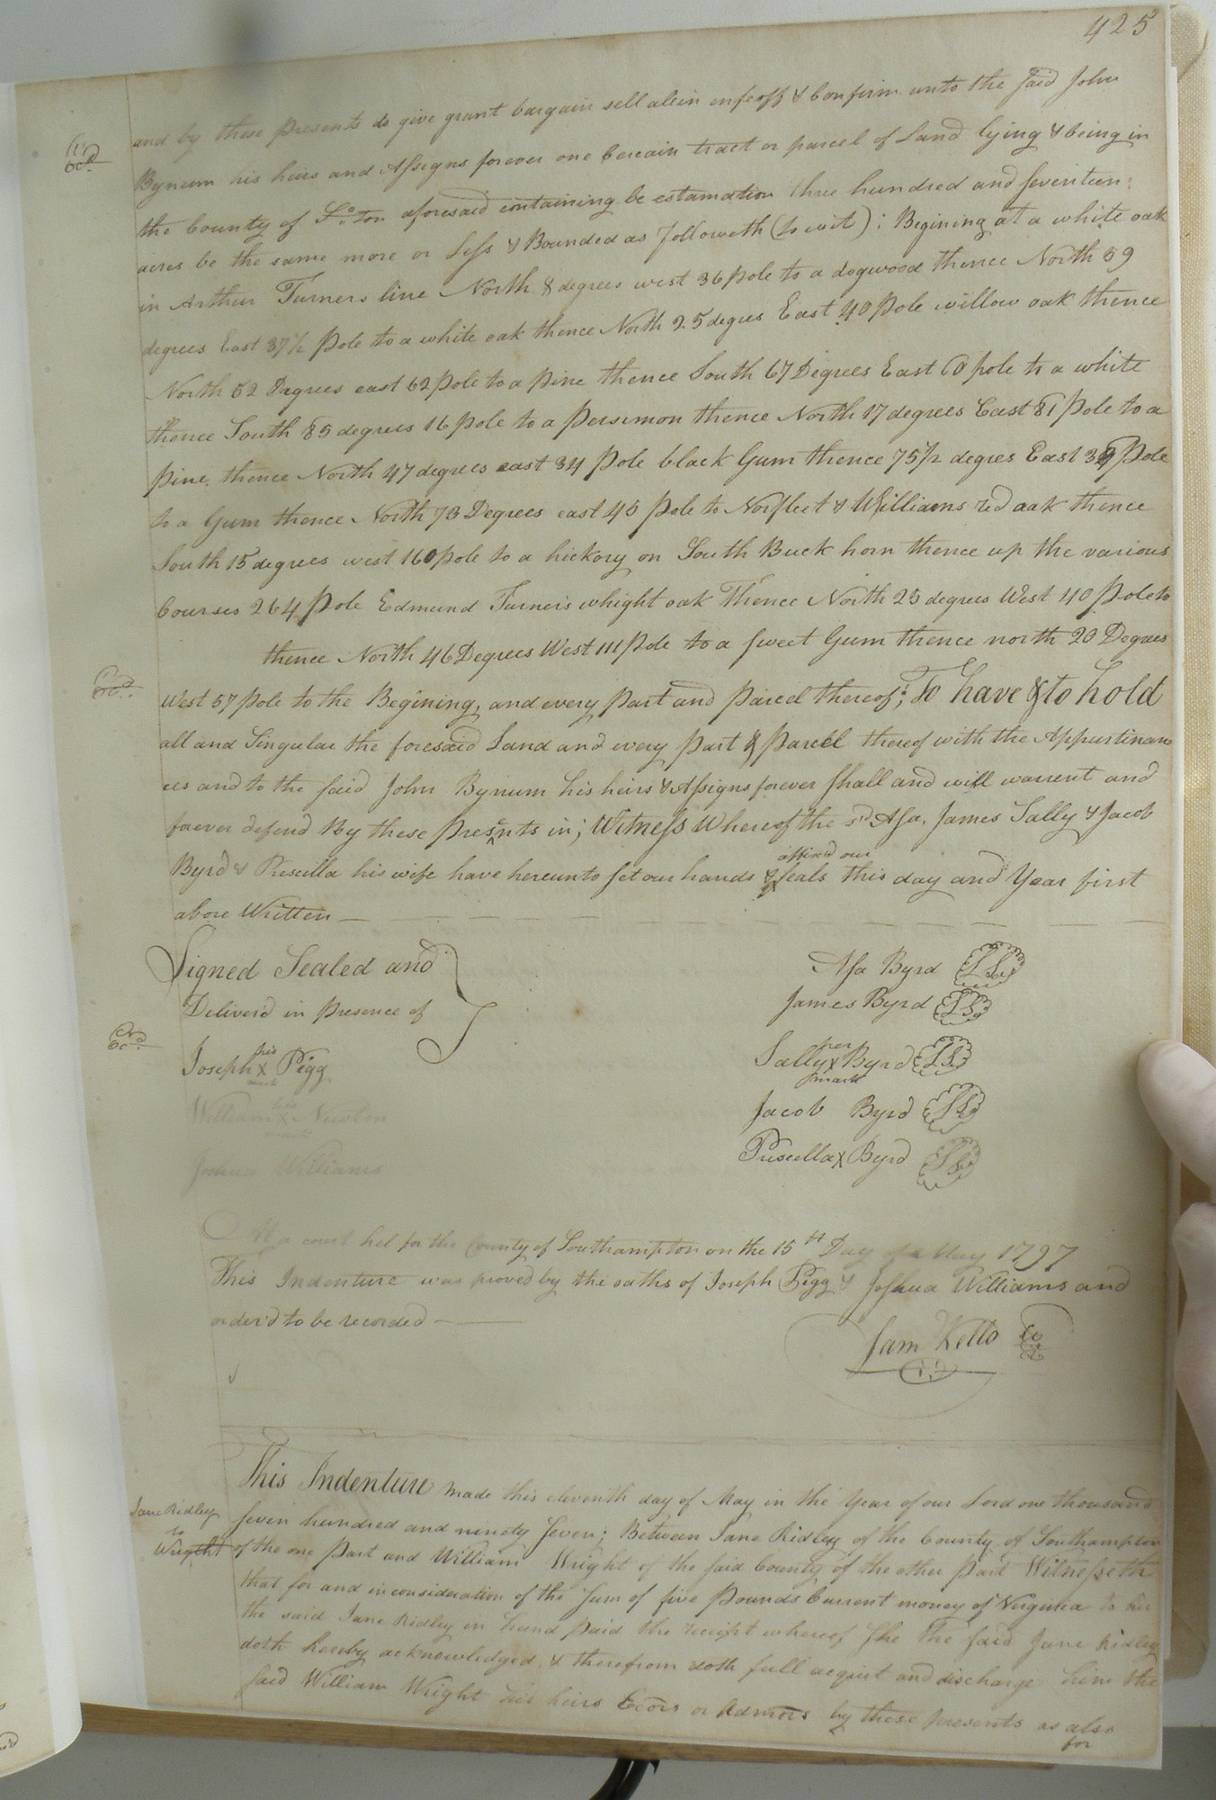 425
and by these Presents do give grant bargain sell alein enfeoff & Confirm unto the said John
Bynum his heirs and Assigns forever one Cercain tract or parcel of Land lying & being in
the County of So.ton aforesaid containing be estamation three hundred and seventeen
acres be the same more or Less & Bounded as followeth (to wit): Begining at a white oak
in Arthur Turners line North 8 degrees west 36 pole to a dogwood thence North 59
degrees East 37½ Pole to a white oak thence North 25 degres East 40 Pole willow oak thence
North 52 Degrees east 62 pole to a pine thence South 67 Degrees East 60 pole to a white
thence South 85 degrees 16 pole to a persimon thence North 17 degrees East 81 Pole to a
pine, thence North 47 degrees east 34 Pole black Gum thence 75½ degres East 39 Pole
to a Gum thence North 73 Degrees east 45 Pole to Norfleet & Williams red oak thence
South 15 degrees west 160 pole to a hickory on South Buck horn thence up the various
Courses 264 Pole Edmund Turners whight oak Thence North 23 degrees West 40 Pole to
thence North 46 Degrees West 111 Pole to a sweet Gum thence north 20 Degrees
West 57 pole to the Begining, and every Part and Parcel thereof; To have & to hold
all and Singular the foresaid Land and every Part & Parcel thereof with the Appurtinan
ces and to the said John Bynum his heirs & Assigns forever shall and will warrent and
forever defend By these Presents in; Witness Whereof the sd. Asa, James Sally & Jacob
Byrd & Priscilla his wife have hereunto set our hands & affixd our seals this day and Year first
above Written
Signed Sealed and
Deliverd in presence of
Joseph his X mark Pigg
William X Newton
Joshua Williams
Asa Byrd LS
James Byrd LS
Sally her X mark Byrd LS
Jacob Byrd LS
Priscilla X Byrd LS
At a court hel for the County of Southampton on the 15th Day of May 1797
This Indenture was proved by the oaths of Joseph Pigg & Joshua Williams and
orderd to be recorded
Sam Kello
Jane Ridley
to
Wright
This Indenture made this eleventh day of May in the Year of our Lord one thousand
seven hundred and ninety seven; Between Jane Ridley of the County of Southampton
of the one Part and William Wright of the said County of the other Part Witnesseth
that for and in consideration of the sum of five Pounds Current money of Virginia to her
the said Jane Ridley in hand paid the receipt whereof she the said Jane Ridley
doth hereby acknowledged, & therefrom doth full acquit and discharge him the
said William Wright his heirs Ecors or Admors by these presents as also
for